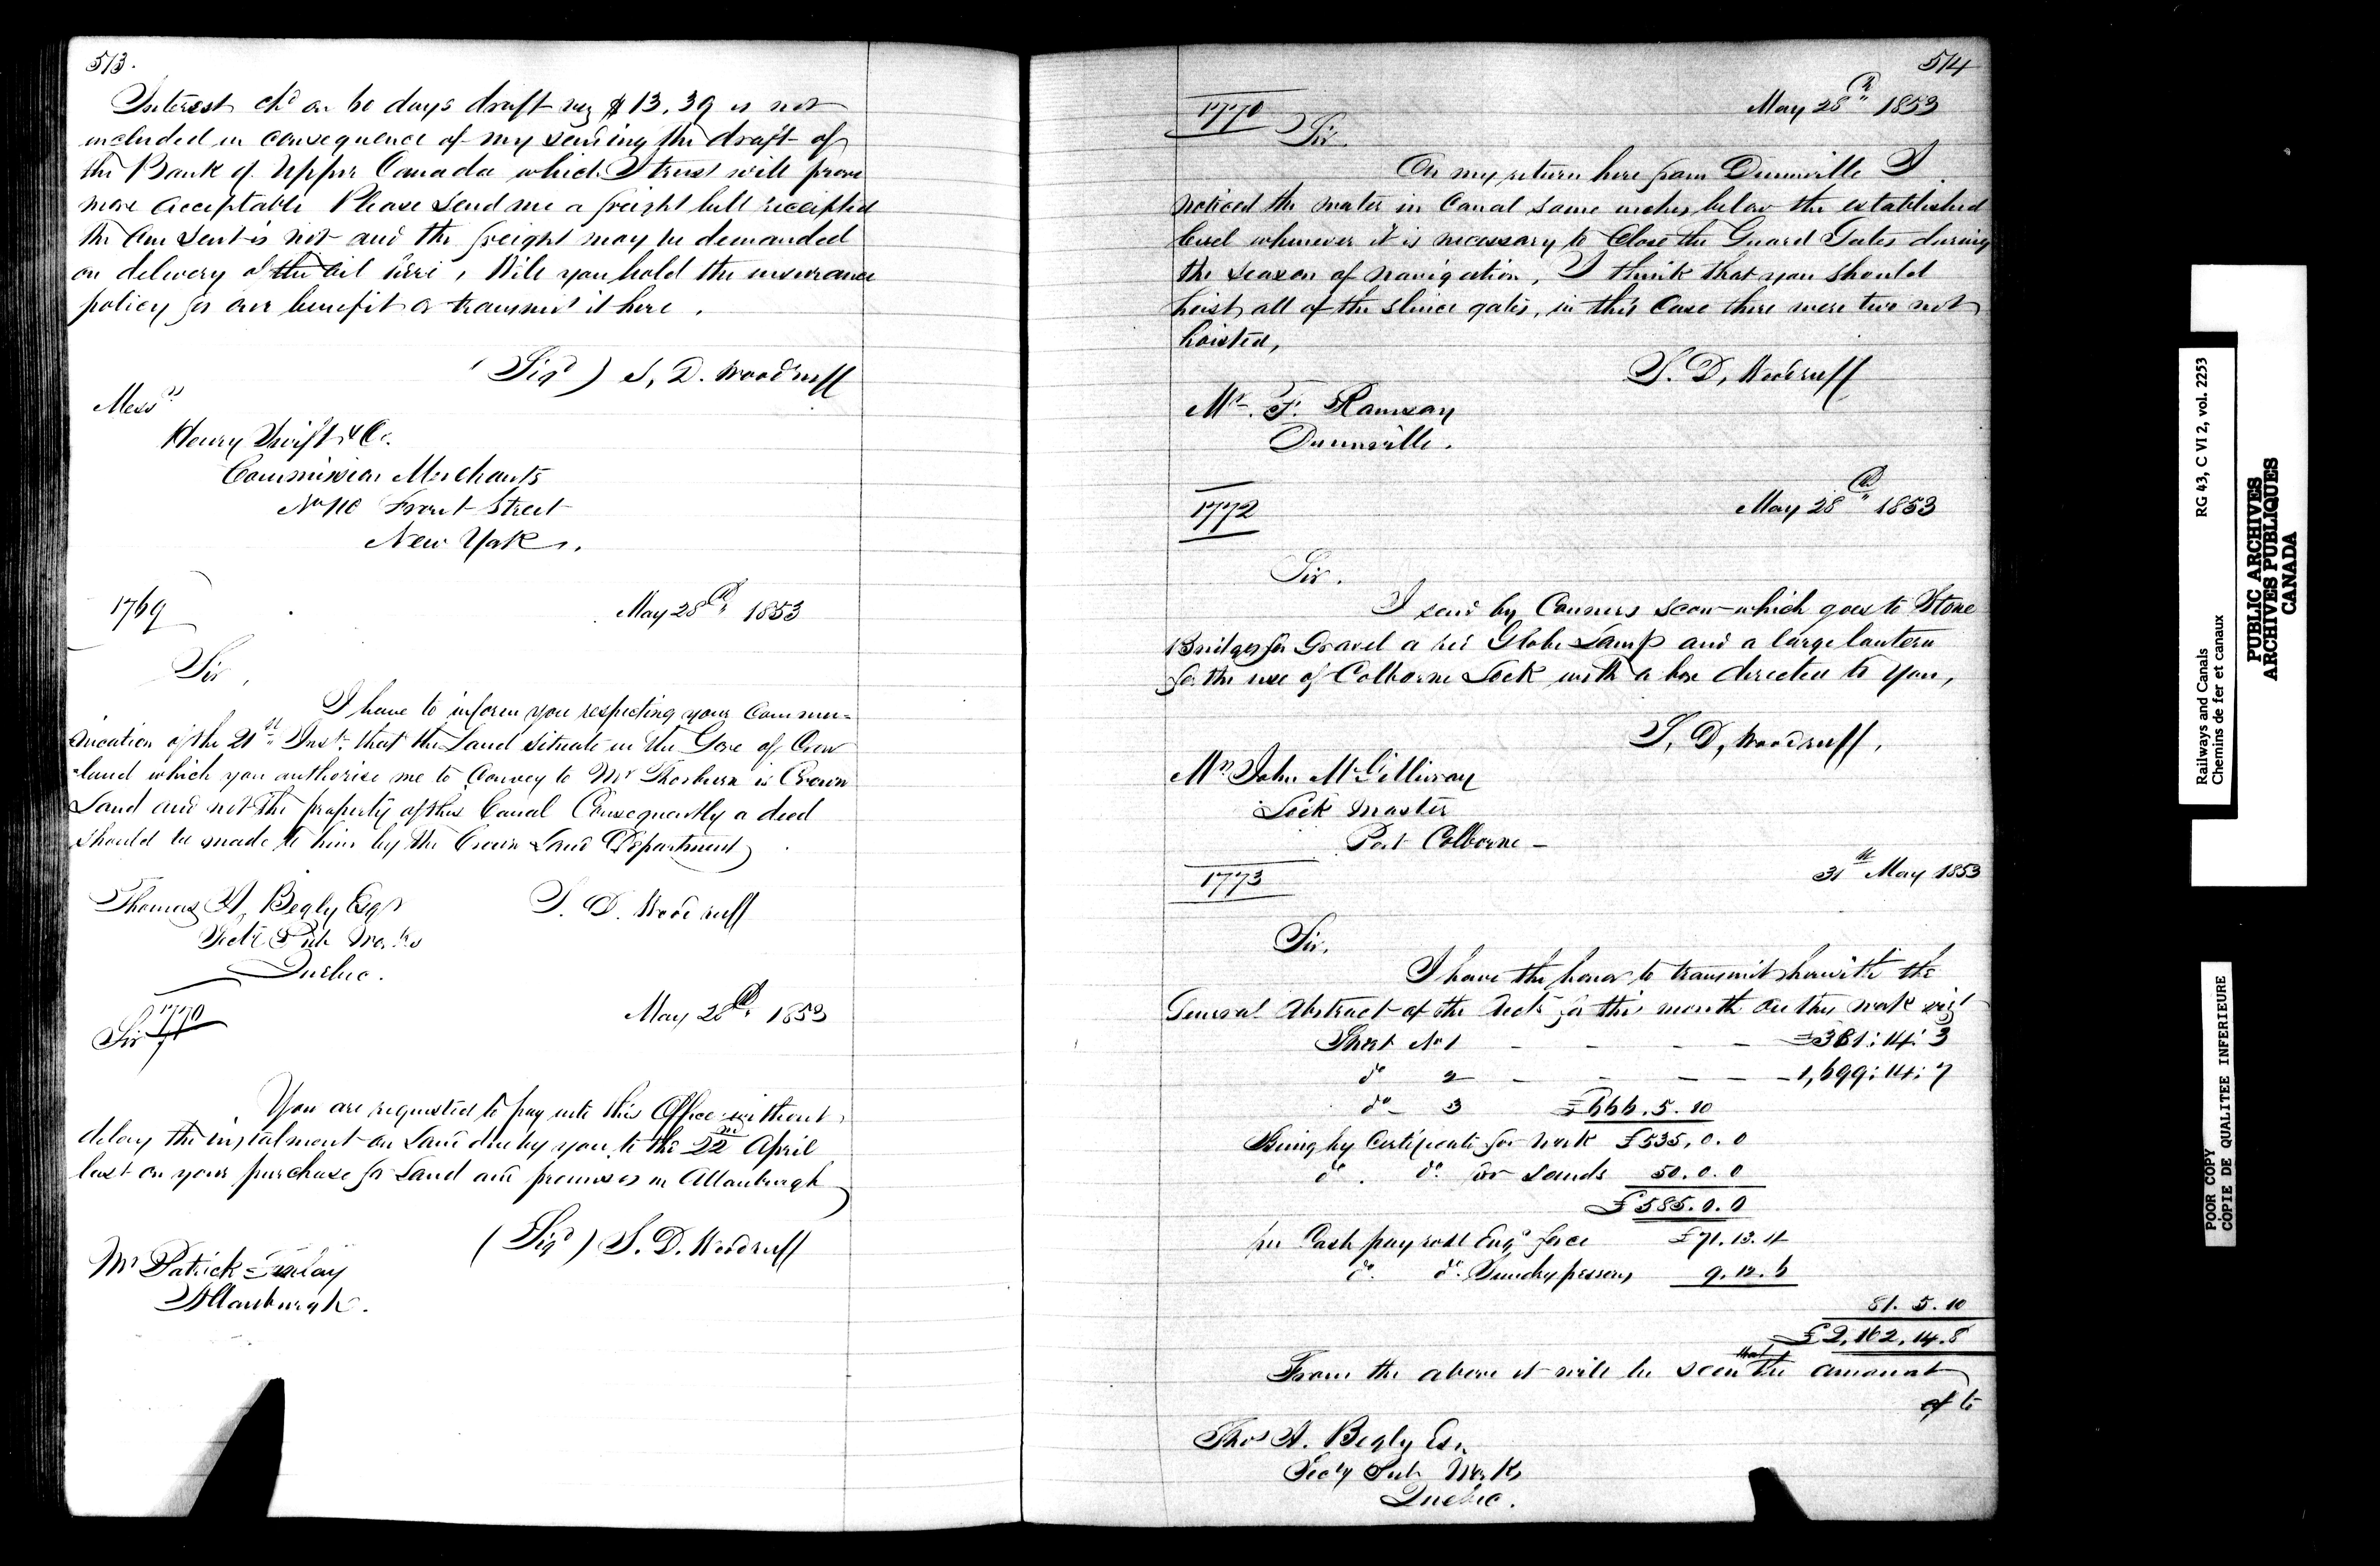 513.
Interest chd on 60 days draft viz $13.39 is not
included in consequence of my sending the draft of
the Bank of Upper Canada which I trust will prove
more acceptable Please send me a freight bill receipted
the Am sent is not and the freight may be demanded
on delivery of the oil here, Will you hold the insurance
policy for our benefit or transmit it here.
(Sigd) S. D. Woodruff
Messrs
Henry Swift & Co.
Commission Merchants
No 110 Front Street
New York.
1769
May 28th 1853
Sir,
I have to inform you respecting your commu=
nication of the 21st Inst. that the Land situate in the Gore of Crow
land which you authorise me to convey to Mr Thorburn is Crown
Land and not the property of this Canal Consequently a deed
should be made to him by the Crown Land Department
S. D. Woodruff
Thomas A. Begly Esqr
Secty Pub Works
Quebec.
1770
May 28th 1853
Sir
You are requested to pay into this Office without
delay the instalment on Land due by you to the 22nd April
last on your purchase for Land and premises in Allanburgh
(Sigd) S. D. Woodruff
Mr Patrick Finlay
Allanburgh.
514
1770
May 28th 1853
Sir.
On my return here from Dunnville I
noticed the water in Canal some inches below the established
level whenever it is necessary to Close the Guard Gates during
the season of navigation, I think that you should
hoist all of the sluice gates, in this Case there were two not
hoisted,
S. D. Woodruff
Mr. F. Ramsay
Dunnville.
1772
May 28th 1853
Sir.
I send by Conners scow which goes to Stone
Bridge for Gravel a red Globe Lamp and a large lantern
for the use of Colborne Lock with a box directed to you,
S. D. Woodruff,
Mr. John McGillivray
Lock Master
Port Colborne -
1773
31st May 1853
Sir,
I have the honor to transmit herewith the
General Abstract of the Accts for this month on this work vizt
Sheet No 1 - - - - £381:14:3
do 2 - - - - 1,699:14:7
do - 3 £666.5.10
Being by Certificate for work £535.0.0
do. do. for Lands 50.0.0
£585.0.0
per Cash pay roll Engr force £71.13.4
do. do. Sundry persons 9.12.6
81.5.10
£2,162.14.8
From the above it will be seen that the amount
of to
Thos A. Begly Esqr
Secty Pub Works
Quebec.
RG 43, C VI 2, vol. 2253
Railways and Canals
Chemins de fer et canaux
PUBLIC ARCHIVES
ARCHIVES PUBLIQUES
CANADA
POOR COPY
COPIE DE QUALITEE INFERIEURE